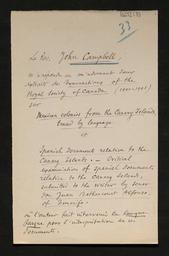 33
Le Rév. John Campbell,
Transactions of the
Royal Society of Canada (1900-1901)
sur
Mexican colonies from the Canary Islands,
traced by language
et
Spanish Documents relative to the
Canary Islands. - Critical
examination of Spanish documents
relative to the Canary Islands,
submitted to the writer by Senor
Don Juan Bethencourt Alfonso,
of Tenerife.
L'auteur fait intervenir la langue
basque pour l'interprétation de ces
documents.